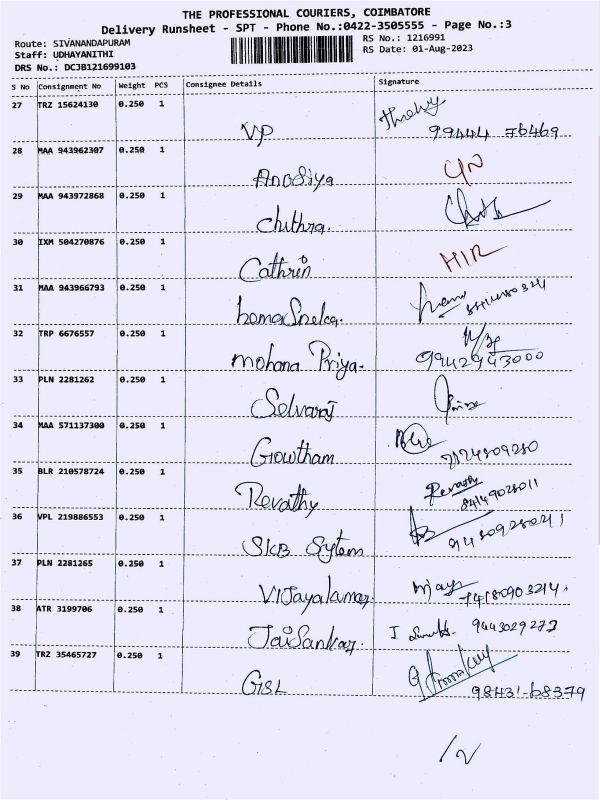 THE PROFESSIONAL COURIERS, COIMBATORE
Delivery Runsheet - SPT - Phone No.:0422-3505555 - Page No.:3
Route: SIVANANDAPURAM RS No.: 1216991
Staff: UDHAYANITHI RS Date: 01-Aug-2023
DRS No.: DCJB121699103
S No Consignment No Weight PCS Consignee Details Signature
27 TRZ 15624130 0.250 1
VP 99444 76469
28 MAA 943962307 0.250 1
29 MAA 943972868 0.250 1
Chithra.
30 IXM 504270876 0.250 1
Cathrin
31 MAA 943966793 0.250 1
32 TRP 6676557 0.250 1
Mohana Priya. 9942943000
33 PLN 2281262 0.250 1
Selvaraj
34 MAA 571137300 0.250 1
Gowtham
35 BLR 210578724 0.250 1
Revathy Revathy
36 VPL 219886553 0.250 1
SKB System
37 PLN 2281265 0.250 1
38 ATR 3199706 0.250 1
Jaisankar
39 TRZ 35465727 0.250 1
GSL 98431-68379